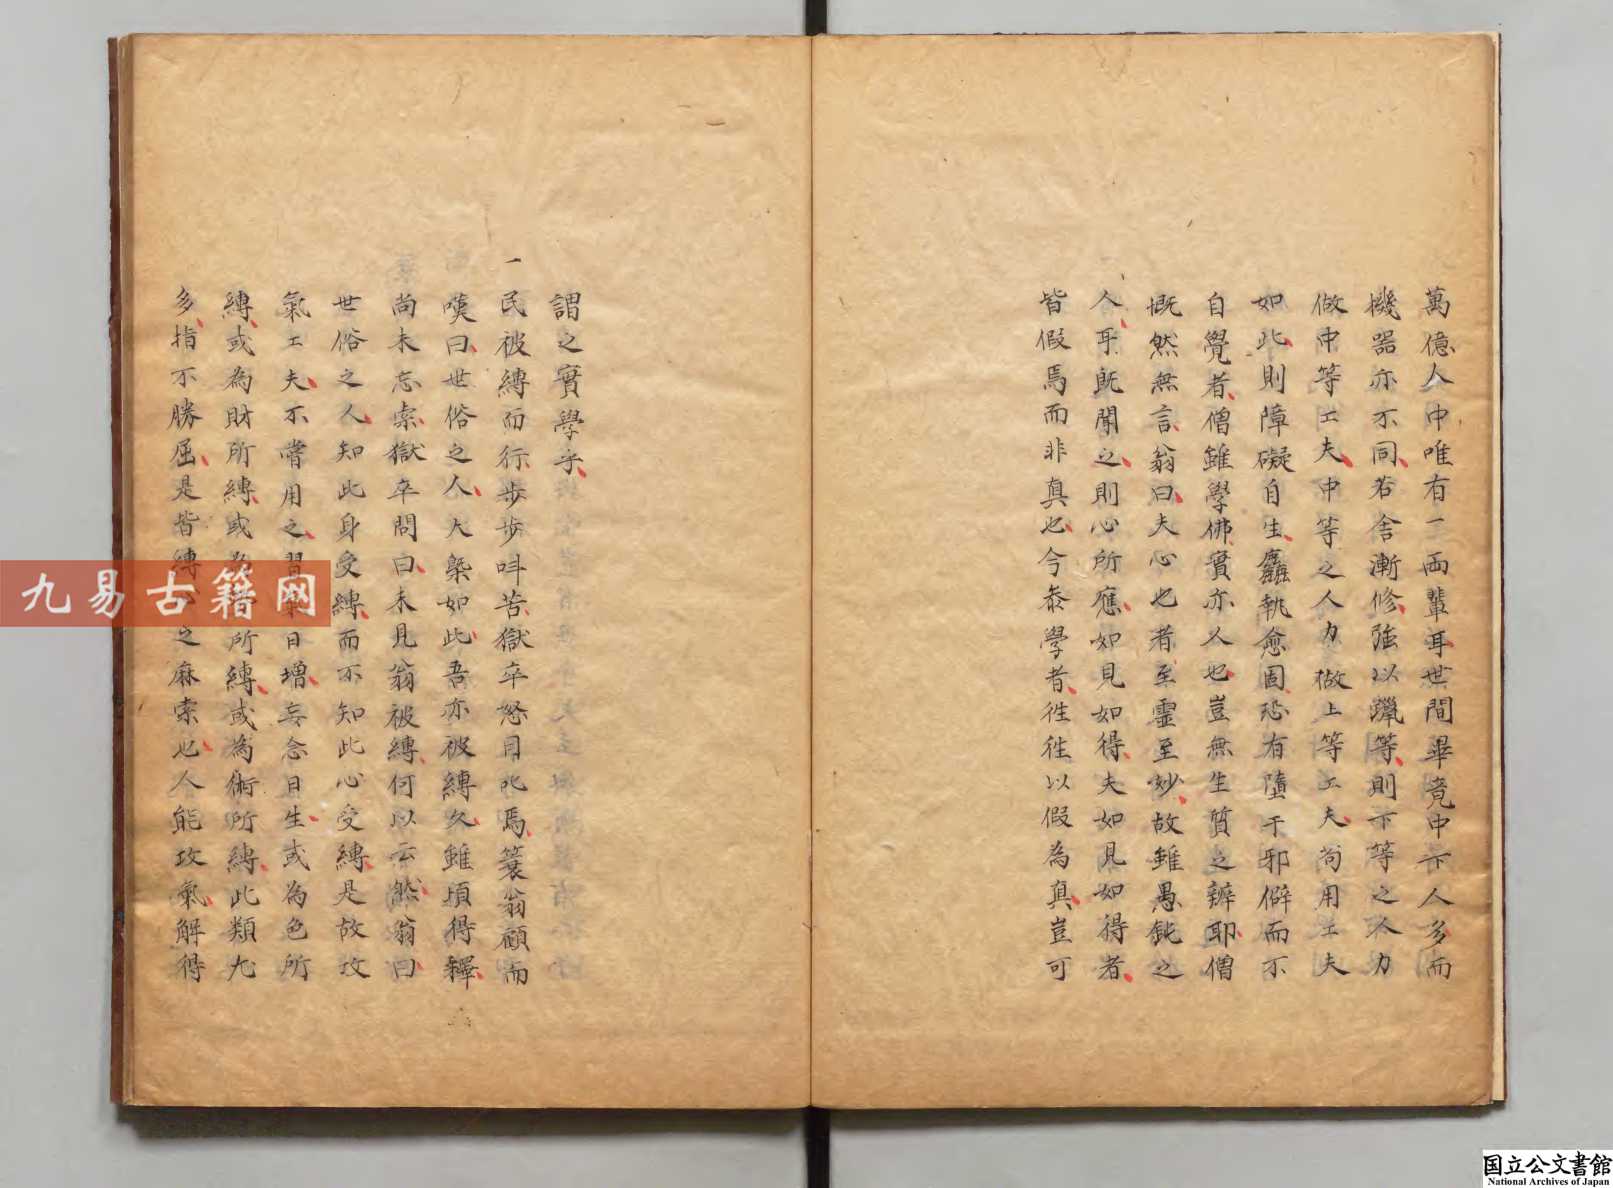 萬億人中唯有一二両輩耳世間畢竟中下人多而
機器亦不同若舍漸修強以躐等則下等之人力
做中等工夫中等之人力做上等工夫尚用工夫
如此則障礙自生麤執愈固恐有墮于邪僻而不
自覺者僧雖學佛實亦人也豈無生質之辨耶僧
慨然無言翁曰夫心也者至靈至妙故雖愚鈍之
人耳既聞之則心所應如見如得夫如見如得者
皆假焉而非真也今叅學者徃徃以假為真豈可
謂之實學乎
一民被縛而行步步呌苦獄卒怒目叱焉篗翁顧而
嘆曰世俗之人大槩如此吾亦被縛久雖頃得釋
尚未忘索獄卒問曰未見翁被縛何以云然翁曰
世俗之人知此身受縛而不知此心受縛是故攻
氣工夫不嘗用之習日增妄念日生或為色所
縛或為財所縛或為所縛或為術所縛此類尤
多指不勝屈是皆縛之麻索也人能攻氣解得
九易古籍网
国立公文書館
National Archives of Japan